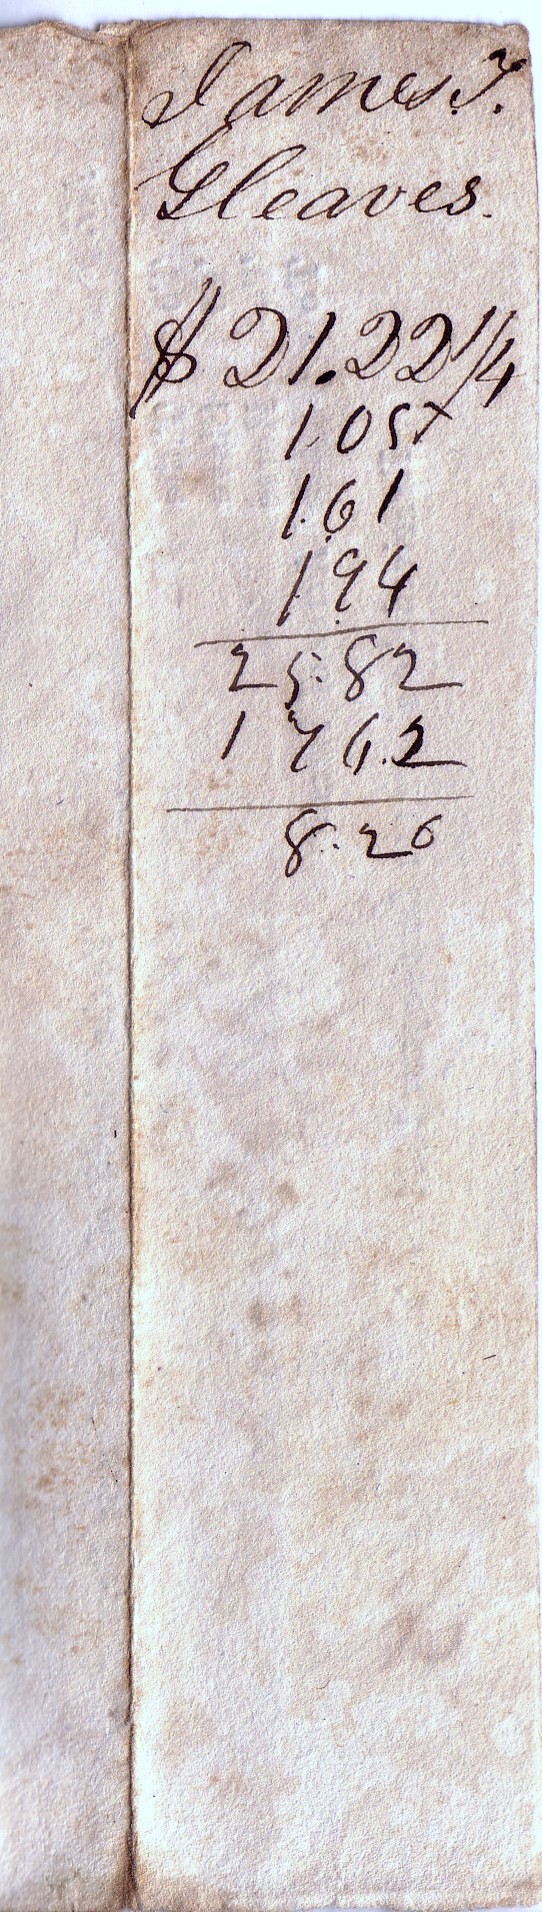 James T.
Gleaves.
$21.22 1/4
1.05
1.61
1.94
25.82
176.2
8.20